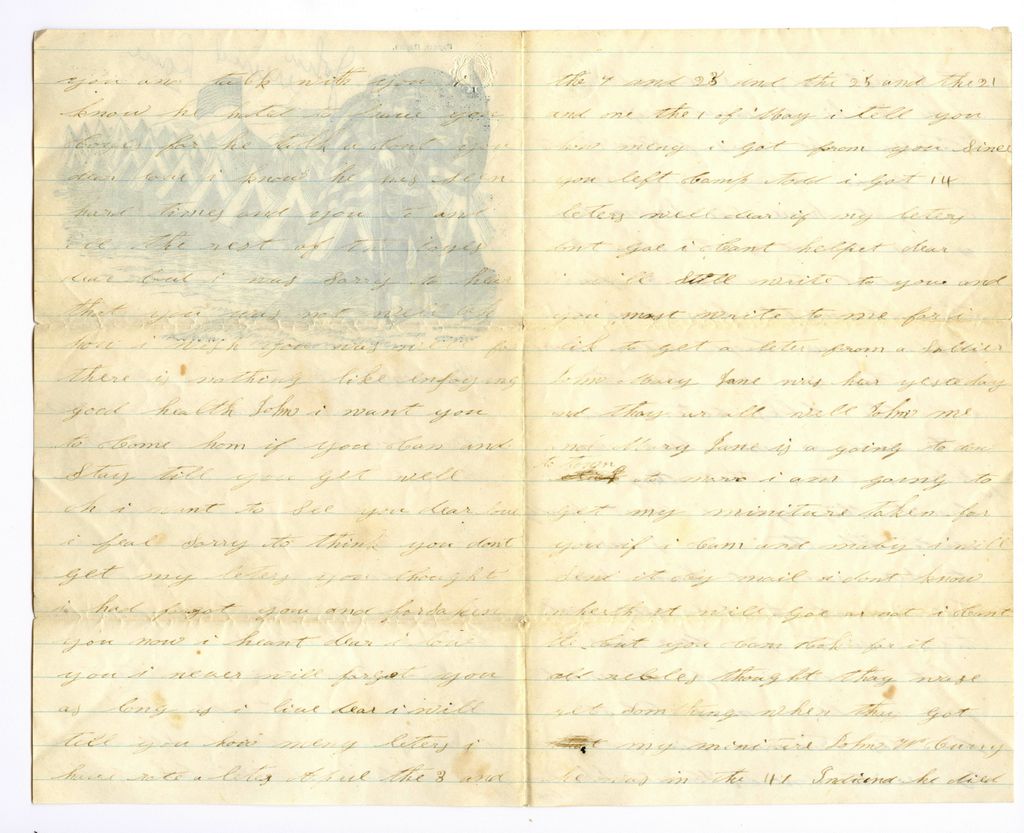 you and talk with you i
know he hated to leave you
boys for he talk a dont you
dear love i know he has seen
hard times and you to and
all the rest of the boys
dear but i was sorry to hear
that you was not well
love i wish you was well for
there is nothing like enjoying
good health John i want you
to Come hom if you Can and
Stay till you get well
oh i want to See you dear love
i feal Sorry to think you dont
get my leters you thought
i had forgot you and forsaken
you now i heant dear i love
you i never will forget you
as long as i live dear i will
till you how meny leters i
have rote a leter Apriel the 3 and
the 7 and 23 and the 25 and the 21
and one the 1 of May i tell you
how meny i got from you Since
you left Camp Todd i got 14
leters well dear if my leters
dont goe i Cant helpet dear
i will Still write to you and
you must write to me for i
lik to get a leter from a Soldier
John Mary Jane was hear yesteday
and thay ar all well John me
and Mary Jane is a going to
to town to morro i am going to
get my miniture taken for
you if i Can and maby i will
Send it by mail i dont know
wherth it will goe or not i Cant
till but you Can look for it
thought thay wase
get Somthing when thay got
my miniture John McCurry
he was in the 41 Indiend he died